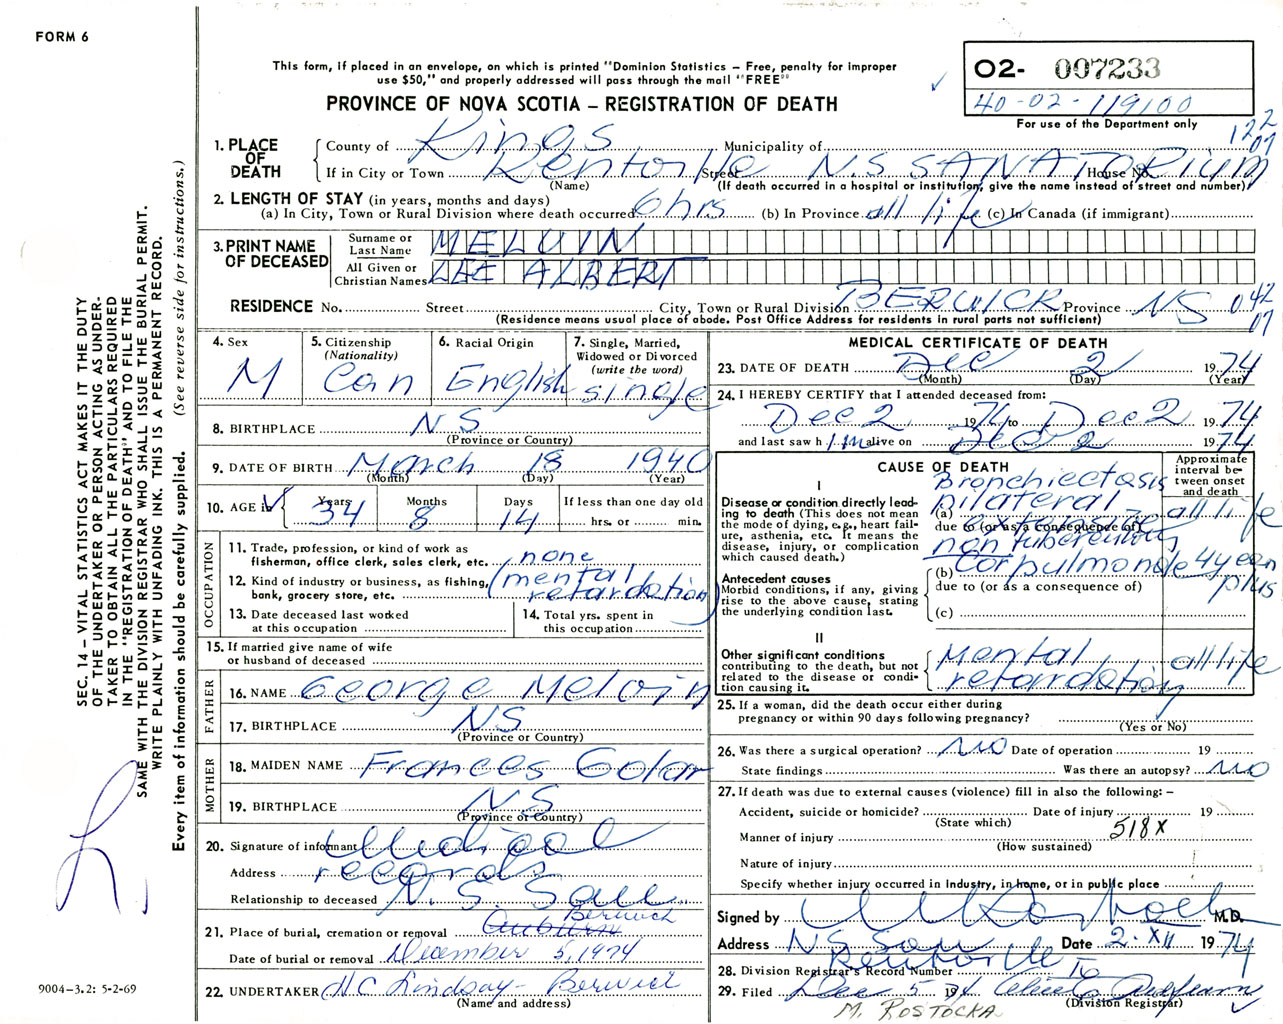 FORM 6
This form, if placed in an envelope, on which is printed "Dominion Statistics – Free, penalty for improper
use $50," and properly addressed will pass through the mail "FREE"
PROVINCE OF NOVA SCOTIA – REGISTRATION OF DEATH
02- 007233
40-02-119100
For use of the Department only
122
07
1. PLACE OF DEATH
County of Kings Municipality of
If in City or Town Kentville Street N.S SANATORIUM House No.
(Name) (If death occurred in a hospital or institution, give the name instead of street and number)
2. LENGTH OF STAY (in years, months and days)
(a) In City, Town or Rural Division where death occurred 6 hrs (b) In Province all life (c) In Canada (if immigrant)
3. PRINT NAME OF DECEASED
Surname or Last Name MELVIN
All Given or Christian Names LEE ALBERT
RESIDENCE No. Street City, Town or Rural Division BERWICK Province NS 042
07
(Residence means usual place of abode. Post Office Address for residents in rural parts not sufficient)
4. Sex M
5. Citizenship (Nationality) Can
6. Racial Origin English
7. Single, Married, Widowed or Divorced (write the word) single
8. BIRTHPLACE NS
(Province or Country)
9. DATE OF BIRTH March 18 1940
(Month) (Day) (Year)
10. AGE is Years 34 Months 8 Days 14 If less than one day old
hrs. or min.
OCCUPATION
11. Trade, profession, or kind of work as
fisherman, office clerk, sales clerk, etc. none
12. Kind of industry or business, as fishing,
bank, grocery store, etc. (mental retardation)
13. Date deceased last worked
at this occupation
14. Total yrs. spent in
this occupation
15. If married give name of wife
or husband of deceased
FATHER
16. NAME George Melvin
17. BIRTHPLACE NS
(Province or Country)
MOTHER
18. MAIDEN NAME Frances
19. BIRTHPLACE NS
(Province or Country)
20. Signature of informant Medical
Address records
Relationship to deceased N.S. San
21. Place of burial, cremation or removal Auburn Berwick
Date of burial or removal December 5, 1974
22. UNDERTAKER H C Lindsay - Berwick
(Name and address)
MEDICAL CERTIFICATE OF DEATH
23. DATE OF DEATH Dec 2 1974
(Month) (Day) (Year)
24. I HEREBY CERTIFY that I attended deceased from:
Dec 2 1974 to Dec 2 1974
and last saw h im alive on Dec 2 1974
CAUSE OF DEATH
Approximate interval between onset and death
I
Disease or condition directly leading to death (This does not
mean the mode of dying, e.g., heart failure, asthenia, etc. It means the
disease, injury, or complication
which caused death.)
Bronchiectasis
(a) bilateral all life
due to (or as a consequence of)
extensive
non tuberculous
Antecedent causes
Morbid conditions, if any, giving
rise to the above cause, stating
the underlying condition last.
(b) Cor pulmonale 4 years plus
due to (or as a consequence of)
(c)
II
Other significant conditions
contributing to the death, but not
related to the disease or condition causing it.
Mental retardation all life
25. If a woman, did the death occur either during
pregnancy or within 90 days following pregnancy?
(Yes or No)
26. Was there a surgical operation? NO Date of operation 19
State findings Was there an autopsy? NO
27. If death was due to external causes (violence) fill in also the following: –
Accident, suicide or homicide? Date of injury 19
(State which)
518X
Manner of injury
(How sustained)
Nature of injury
Specify whether injury occurred in Industry, in home, or in public place
Signed by M.D.
Address NS San Kentville Date 2. XII 1974
28. Division Registrar's Record Number
29. Filed Dec 5 1974
(Division Registrar)
M. ROSTOCKA
SEC. 14 – VITAL STATISTICS ACT MAKES IT THE DUTY
OF THE UNDERTAKER OR PERSON ACTING AS UNDERTAKER
TO OBTAIN ALL THE PARTICULARS REQUIRED
IN THE "REGISTRATION OF DEATH" AND TO FILE THE
SAME WITH THE DIVISION REGISTRAR WHO SHALL ISSUE THE BURIAL PERMIT.
WRITE PLAINLY WITH UNFADING INK. THIS IS A PERMANENT RECORD.
Every item of information should be carefully supplied. (See reverse side for instructions.)
9004-3.2: 5-2-69